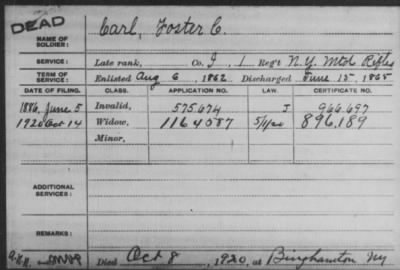 DEAD
NAME OF SOLDIER: Carl, Foster C.
SERVICE: Late rank, Co. I, 1 Reg't N.Y. Mtd Rifles
TERM OF SERVICE: Enlisted Aug 6, 1862 Discharged June 15, 1865
DATE OF FILING. CLASS. APPLICATION NO. LAW. CERTIFICATE NO.
1886, June 5 Invalid, 575674 J 966.697
1920 Oct 14 Widow, 1164087 896,189
Minor,
ADDITIONAL SERVICES:
REMARKS:
Died Oct 8, 1920, at Binghamton Ny